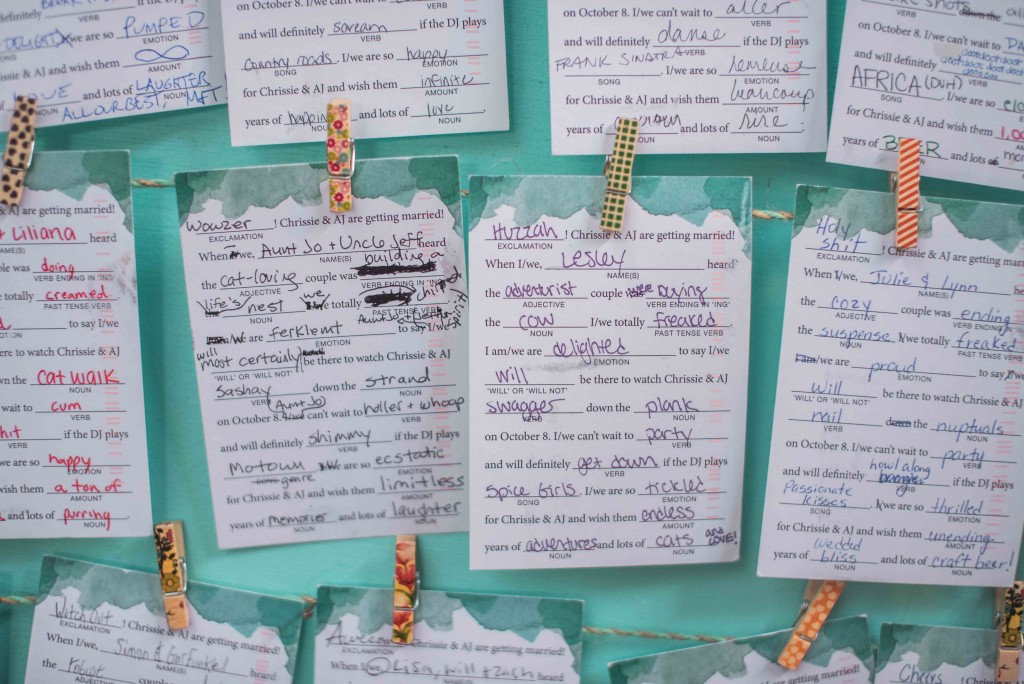 PUMPED
DELIGHT, we are so
EMOTION
Chrissie & AJ and wish them ∞
AMOUNT
LOVE and lots of LAUGHTER
NOUN NOUN
ALL OUR BEST,
on October 8. I/we can't wait to
VERB
and will definitely scream if the DJ plays
VERB
country roads. I/we are so happy
SONG EMOTION
for Chrissie & AJ and wish them infinite
AMOUNT
years of and lots of love
NOUN NOUN
on October 8. I/we can't wait to aller
VERB
and will definitely danse if the DJ plays
VERB
FRANK SINATRA. I/we are so
SONG EMOTION
for Chrissie & AJ and wish them beaucoup
AMOUNT
years of and lots of rire.
NOUN NOUN
on October 8. I/we can't wait to
and will definitely
AFRICA (DUH) I/we are so
SONG
for Chrissie & AJ and wish them
years of BEER and lots of
NOUN
! Chrissie & AJ are getting married!
+ Liliana heard
NAME(S)
couple was doing
VERB ENDING IN 'ING'
totally creamed
PAST TENSE VERB
to say I/we
be there to watch Chrissie & AJ
down the cat walk
NOUN
wait to cum
VERB
if the DJ plays
VERB
we are so happy
EMOTION
wish them a ton of
AMOUNT
and lots of purring
NOUN
Wowzer! Chrissie & AJ are getting married!
EXCLAMATION
When we, Aunt Jo + Uncle Jeff heard
NAME(S)
building a
the cat-loving couple was
ADJECTIVE VERB ENDING IN 'ING'
life's nest we totally
NOUN PAST TENSE VERB
Aunt Jo + Jeff
I am/we are ferklemt to say I/we
EMOTION
will
most certainly be there to watch Chrissie & AJ
'WILL' OR 'WILL NOT'
sashay down the strand
VERB NOUN
(Aunt Jo)
on October 8. I/we can't wait to holler + whoop
VERB
and will definitely shimmy if the DJ plays
VERB
Motown I/We are so ecstatic
genre EMOTION
for Chrissie & AJ and wish them limitless
AMOUNT
years of memories and lots of laughter
NOUN NOUN
Huzzah! Chrissie & AJ are getting married!
EXCLAMATION
When I/we, Lesley heard
NAME(S)
the adventurist couple were buying
ADJECTIVE VERB ENDING IN 'ING'
the cow I/we totally freaked
NOUN PAST TENSE VERB
I am/we are delighted to say I/we
EMOTION
will be there to watch Chrissie & AJ
'WILL' OR 'WILL NOT'
swagger down the plank
VERB NOUN
on October 8. I/we can't wait to party
VERB
and will definitely get down if the DJ plays
VERB
Spice Girls. I/we are so tickled
SONG EMOTION
for Chrissie & AJ and wish them endless
AMOUNT
years of adventures and lots of cats and LOVE!
NOUN NOUN
Holy
shit! Chrissie & AJ are getting married!
EXCLAMATION
When I/we, Julie & Lynn
NAME(S)
the cozy couple was ending
ADJECTIVE VERB ENDING IN
the suspense I/we totally freaked
NOUN PAST TENSE VERB
I am/we are proud to say I/we
EMOTION
will be there to watch Chrissie &
'WILL' OR 'WILL NOT'
nail down the nuptuals
VERB NOUN
on October 8. I/we can't wait to party
VERB
howl along
and will definitely if the DJ plays
VERB
Passionate
Kisses. I/we are so thrilled
SONG EMOTION
for Chrissie & AJ and wish them unending
AMOUNT
wedded
years of bliss and lots of craft beer!
NOUN NOUN
Watch Out! Chrissie & AJ are getting married!
EXCLAMATION
When I/we, Simon & Garfunkel heard
NAME(S)
the Robust
ADJECTIVE
Awesome! Chrissie & AJ are getting married!
EXCLAMATION
When I/we, Lisa, Will + Zash heard
are getting married!
Cheers
EXCLAMATION